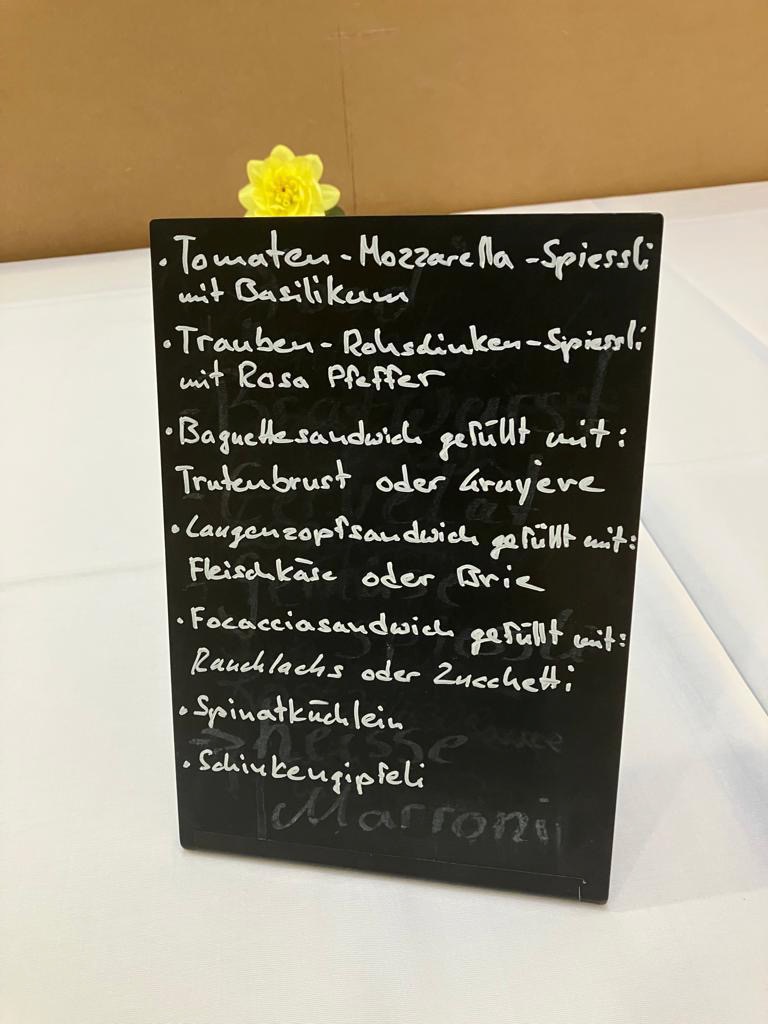 • Tomaten - Mozzarella - Spiessli
mit Basilikum
• Trauben - Rohschinken - Spiessli
mit Rosa Pfeffer
• Baguettesandwich gefüllt mit:
Trutenbrust oder Gruyere
• Laugenzopfsandwich gefüllt mit:
Fleischkäse oder Brie
• Focacciasandwich gefüllt mit:
Rauchlachs oder Zucchetti
• Spinatküchlein
• Schinkengipfeli
Marroni